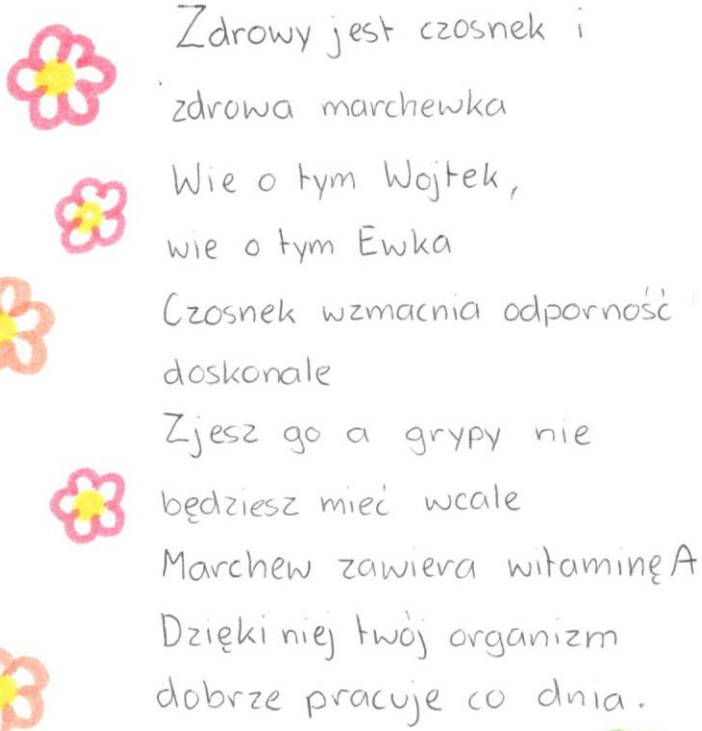 Zdrowy jest czosnek i
zdrowa marchewka
Wie o tym Wojtek,
wie o tym Ewka
Czosnek wzmacnia odporność
doskonale
Zjesz go a grypy nie
będziesz mieć wcale
Marchew zawiera witaminę A
Dzięki niej twój organizm
dobrze pracuje co dnia.